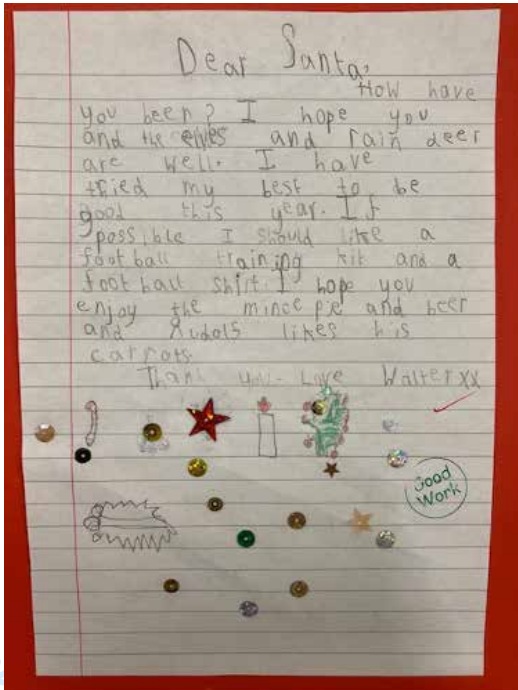 Dear Santa,
How have
you been? I hope you
and the elves and rain deer
are well. I have
tried my best to be
good this year. If
possible I should like a
football training kit and a
football shirt. I hope you
enjoy the mince pie and beer
and Rudolf likes his
carrots
Thank you. Love Walter xx
Good
Work